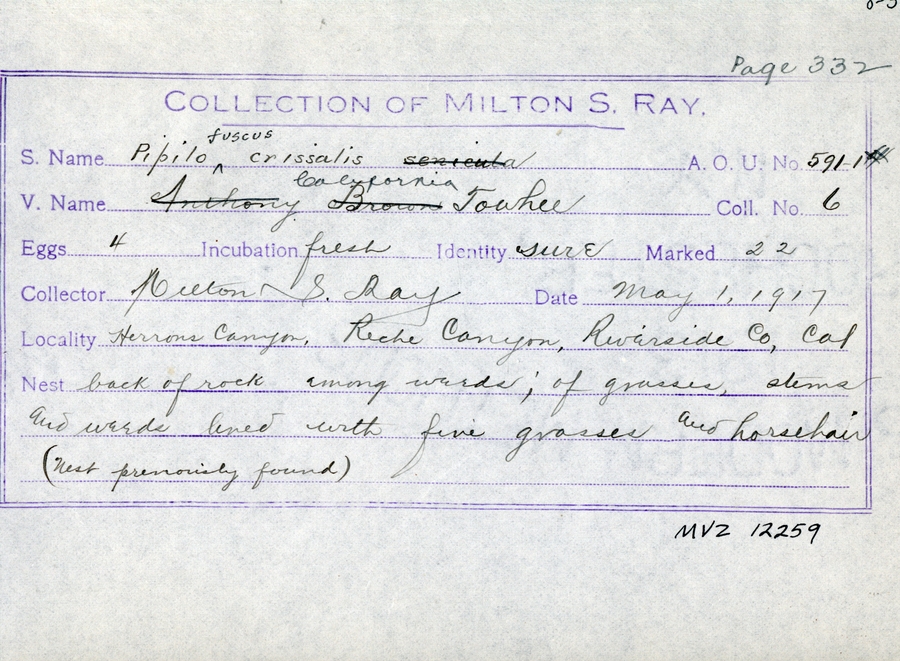 Page 332
COLLECTION OF MILTON S. RAY.
fuscus
S. Name Pipilo ^ crissalis senicula A. O. U. No. 591-1
California
V. Name Anthony Brown Towhee Coll. No. 6
Eggs 4 Incubation fresh Identity sure Marked 22
Collector Milton S. Ray Date May 1, 1917
Locality Herrons Canyon, Reche Canyon, Riverside Co, Cal
Nest back of rock among weeds; of grasses, stems
and weeds lined with fine grasses and horsehair
(Nest previously found)
MVZ 12259